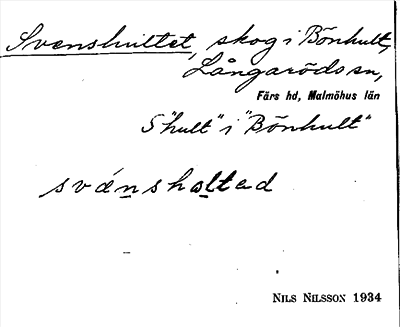 Svenshultet, skog i Bönhult,
Långaröds sn,
Färs hd, Malmöhus län
S "hult" i "Bönhult"
svánshaltad
NILS NILSSON 1934